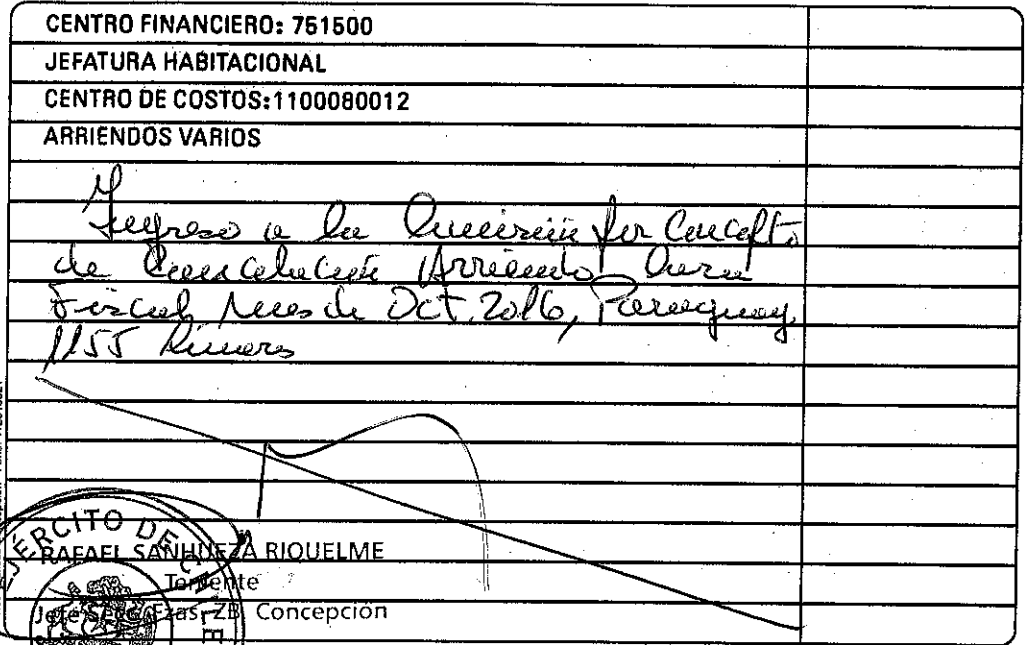 CENTRO FINANCIERO: 751500
JEFATURA HABITACIONAL
CENTRO DE COSTOS:1100080012
ARRIENDOS VARIOS
Ingreso a la por Concepto
de Cancelación Arriendo Casa
Fiscal Mes de Oct. 2016, Paraguay
1155
EJÉRCITO DE CHILE
RAFAEL SANHUEZA RIQUELME
Teniente
Jefe Secc. Fzas. ZB. Concepción